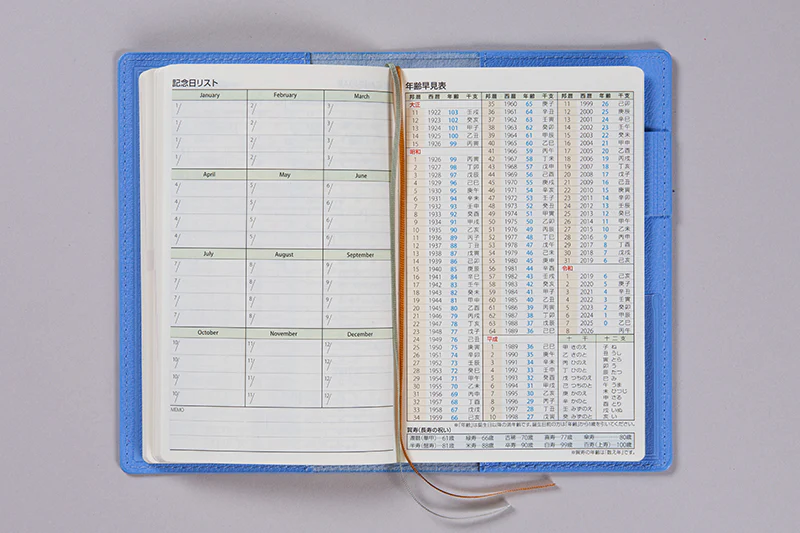 記念日リスト
January February March
1/ 2/ 3/
1/ 2/ 3/
1/ 2/ 3/
1/ 2/ 3/
April May June
4/ 5/ 6/
4/ 5/ 6/
4/ 5/ 6/
4/ 5/ 6/
July August September
7/ 8/ 9/
7/ 8/ 9/
7/ 8/ 9/
7/ 8/ 9/
October November December
10/ 11/ 12/
10/ 11/ 12/
10/ 11/ 12/
10/ 11/ 12/
MEMO
年齢早見表
邦暦 西暦 年齢 干支
大正
11 1922 103 壬戌
12 1923 102 癸亥
13 1924 101 甲子
14 1925 100 乙丑
15 1926 99 丙寅
昭和
1 1926 99 丙寅
2 1927 98 丁卯
3 1928 97 戊辰
4 1929 96 己巳
5 1930 95 庚午
6 1931 94 辛未
7 1932 93 壬申
8 1933 92 癸酉
9 1934 91 甲戌
10 1935 90 乙亥
11 1936 89 丙子
12 1937 88 丁丑
13 1938 87 戊寅
14 1939 86 己卯
15 1940 85 庚辰
16 1941 84 辛巳
17 1942 83 壬午
18 1943 82 癸未
19 1944 81 甲申
20 1945 80 乙酉
21 1946 79 丙戌
22 1947 78 丁亥
23 1948 77 戊子
24 1949 76 己丑
25 1950 75 庚寅
26 1951 74 辛卯
27 1952 73 壬辰
28 1953 72 癸巳
29 1954 71 甲午
30 1955 70 乙未
31 1956 69 丙申
32 1957 68 丁酉
33 1958 67 戊戌
34 1959 66 己亥
邦暦 西暦 年齢 干支
35 1960 65 庚子
36 1961 64 辛丑
37 1962 63 壬寅
38 1963 62 癸卯
39 1964 61 甲辰
40 1965 60 乙巳
41 1966 59 丙午
42 1967 58 丁未
43 1968 57 戊申
44 1969 56 己酉
45 1970 55 庚戌
46 1971 54 辛亥
47 1972 53 壬子
48 1973 52 癸丑
49 1974 51 甲寅
50 1975 50 乙卯
51 1976 49 丙辰
52 1977 48 丁巳
53 1978 47 戊午
54 1979 46 己未
55 1980 45 庚申
56 1981 44 辛酉
57 1982 43 壬戌
58 1983 42 癸亥
59 1984 41 甲子
60 1985 40 乙丑
61 1986 39 丙寅
62 1987 38 丁卯
63 1988 37 戊辰
64 1989 36 己巳
平成
1 1989 36 己巳
2 1990 35 庚午
3 1991 34 辛未
4 1992 33 壬申
5 1993 32 癸酉
6 1994 31 甲戌
7 1995 30 乙亥
8 1996 29 丙子
9 1997 28 丁丑
10 1998 27 戊寅
邦暦 西暦 年齢 干支
11 1999 26 己卯
12 2000 25 庚辰
13 2001 24 辛巳
14 2002 23 壬午
15 2003 22 癸未
16 2004 21 甲申
17 2005 20 乙酉
18 2006 19 丙戌
19 2007 18 丁亥
20 2008 17 戊子
21 2009 16 己丑
22 2010 15 庚寅
23 2011 14 辛卯
24 2012 13 壬辰
25 2013 12 癸巳
26 2014 11 甲午
27 2015 10 乙未
28 2016 9 丙申
29 2017 8 丁酉
30 2018 7 戊戌
31 2019 6 己亥
令和
1 2019 6 己亥
2 2020 5 庚子
3 2021 4 辛丑
4 2022 3 壬寅
5 2023 2 癸卯
6 2024 1 甲辰
7 2025 0 乙巳
8 2026 丙午
十干
甲 きのえ
乙 きのと
丙 ひのえ
丁 ひのと
戊 つちのえ
己 つちのと
庚 かのえ
辛 かのと
壬 みずのえ
癸 みずのと
十二支
子 ね
丑 うし
寅 とら
卯 う
辰 たつ
巳 み
午 うま
未 ひつじ
申 さる
酉 とり
戌 いぬ
亥 い
※「年齢」は誕生日以降の満年齢です。誕生日前の方は「年齢」から1歳を引いてください。
賀寿(長寿の祝い)
還暦(華甲)…61歳 緑寿…66歳 古希…70歳 喜寿…77歳 傘寿…80歳
半寿(盤寿)…81歳 米寿…88歳 卒寿…90歳 白寿…99歳 百寿(上寿)…100歳
※賀寿の年齢は「数え年」です。